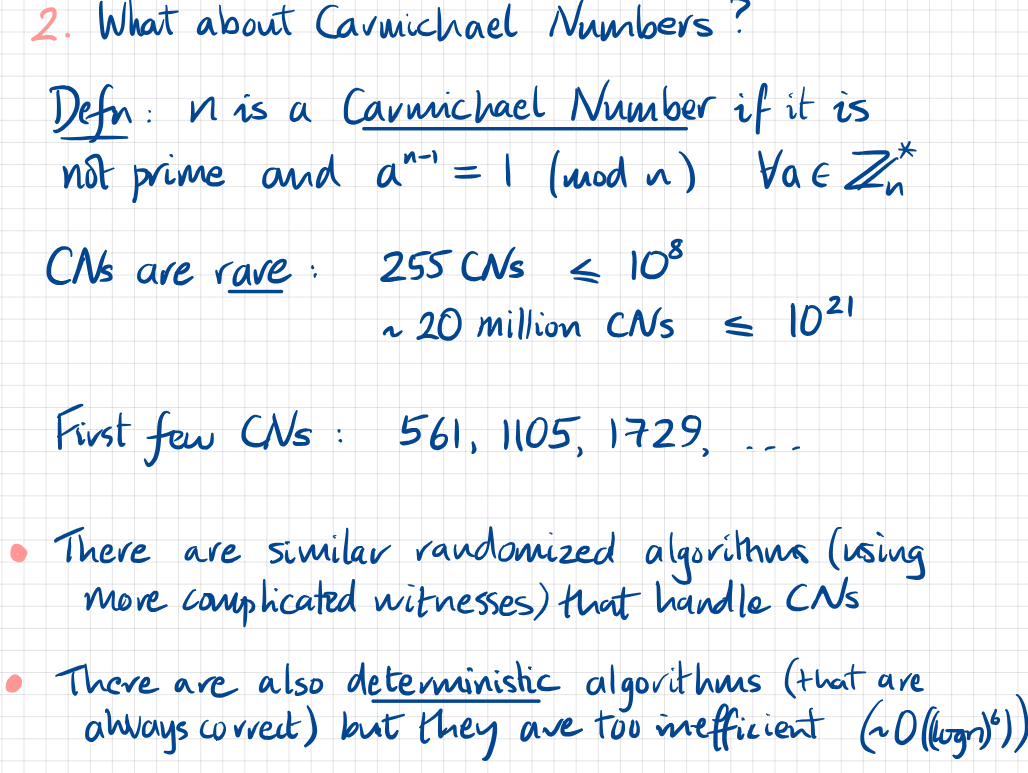 2. What about Carmichael Numbers?
Defn: n is a Carmichael Number if it is
not prime and a^{n-1} = 1 (mod n) ∀a ∈ ℤ_n^*
CNs are rare: 255 CNs ≤ 10^8
~ 20 million CNs ≤ 10^{21}
First few CNs: 561, 1105, 1729, ...
• There are similar randomized algorithms (using
more complicated witnesses) that handle CNs
• There are also deterministic algorithms (that are
always correct) but they are too inefficient (~O((log n)^6))